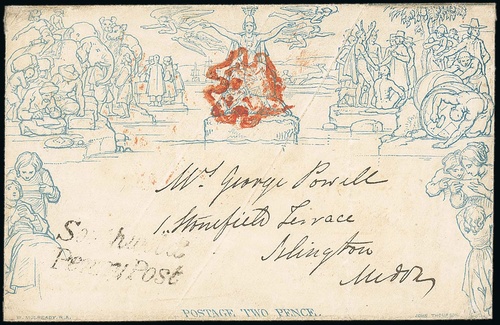 Mrs. George Powell
1. Stonefield Terrace
Islington
Middx
Penny Post
POSTAGE TWO PENCE.
W. MULREADY. R.A.
JOHN THOMPSON